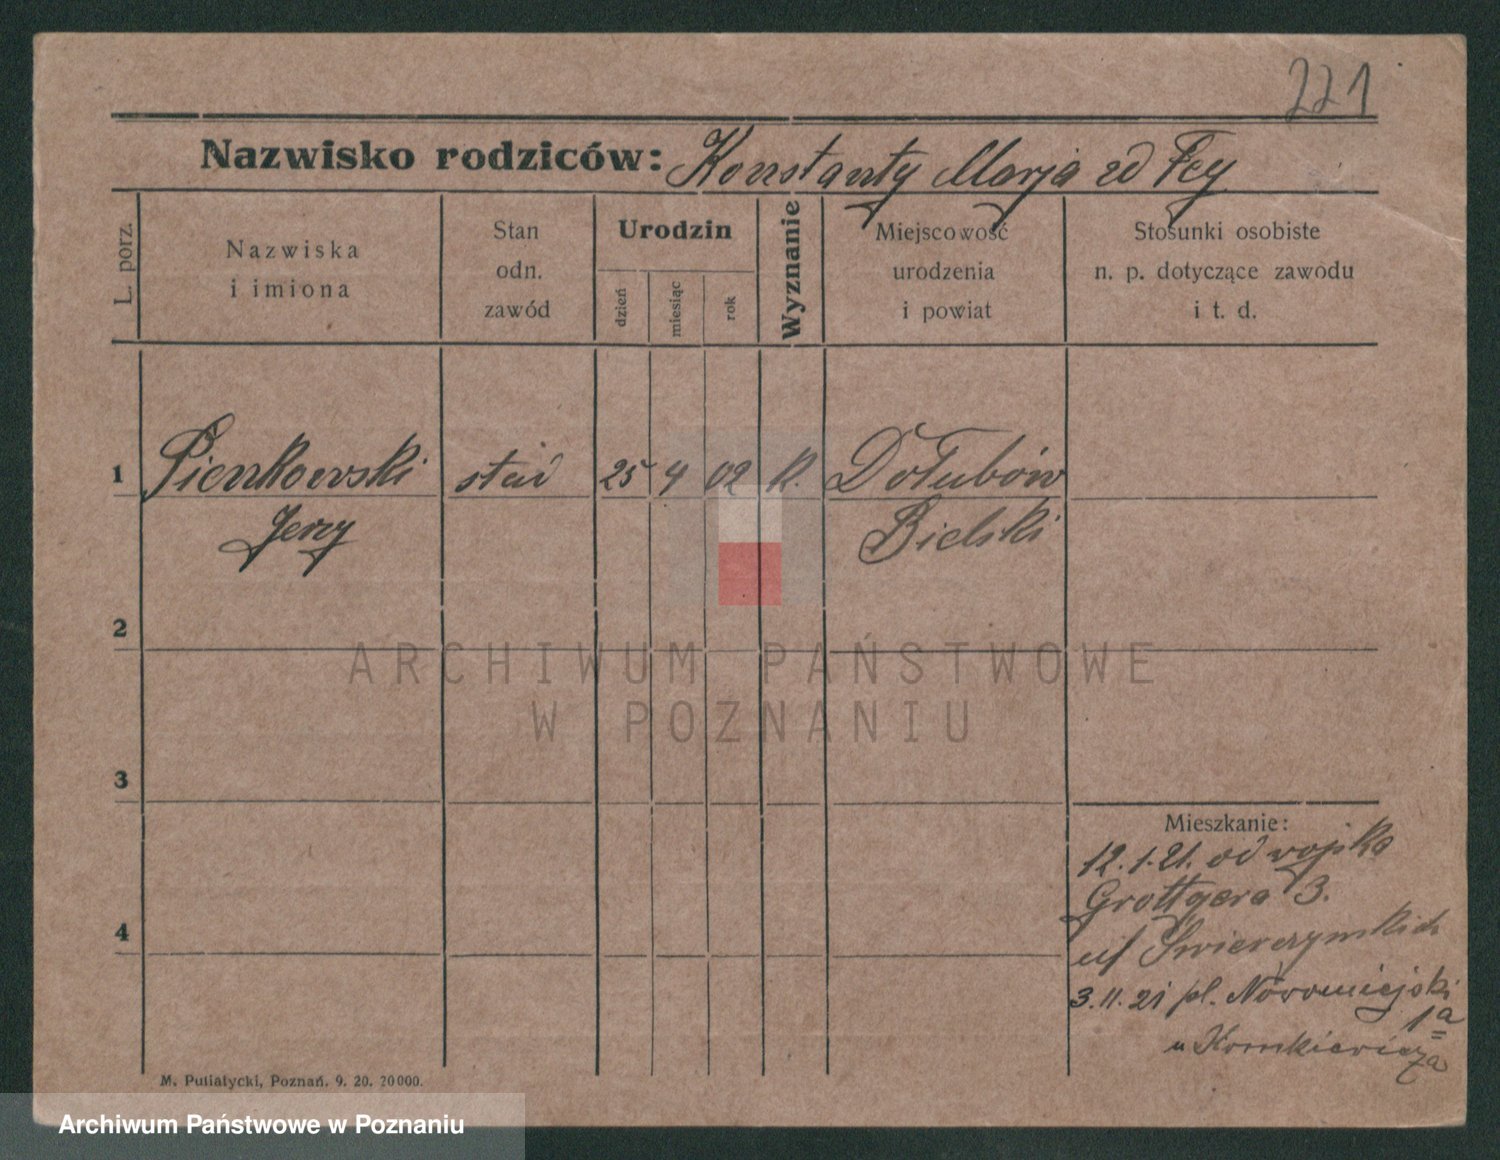 221
Nazwisko rodziców: Konstanty Marja zd Fey
L. porz.
Nazwiska
i imiona
Stan
odn.
zawód
Urodzin
dzień
miesiąc
rok
Wyznanie
Miejscowość
urodzenia
i powiat
Stosunki osobiste
n. p. dotyczące zawodu
i t. d.
1 Pienkowski stud 25 4 02 K. Dołubów
Jerzy Bielski
2
3
4
Mieszkanie:
12.1.21. od wojska
Grottgera 3.
u/ Świerczymskich
3.11.21 pl. Nowomiejski
1a
u
M. Putiatycki, Poznań. 9. 20. 20000.
ARCHIWUM PAŃSTWOWE
W POZNANIU
Archiwum Państwowe w Poznaniu